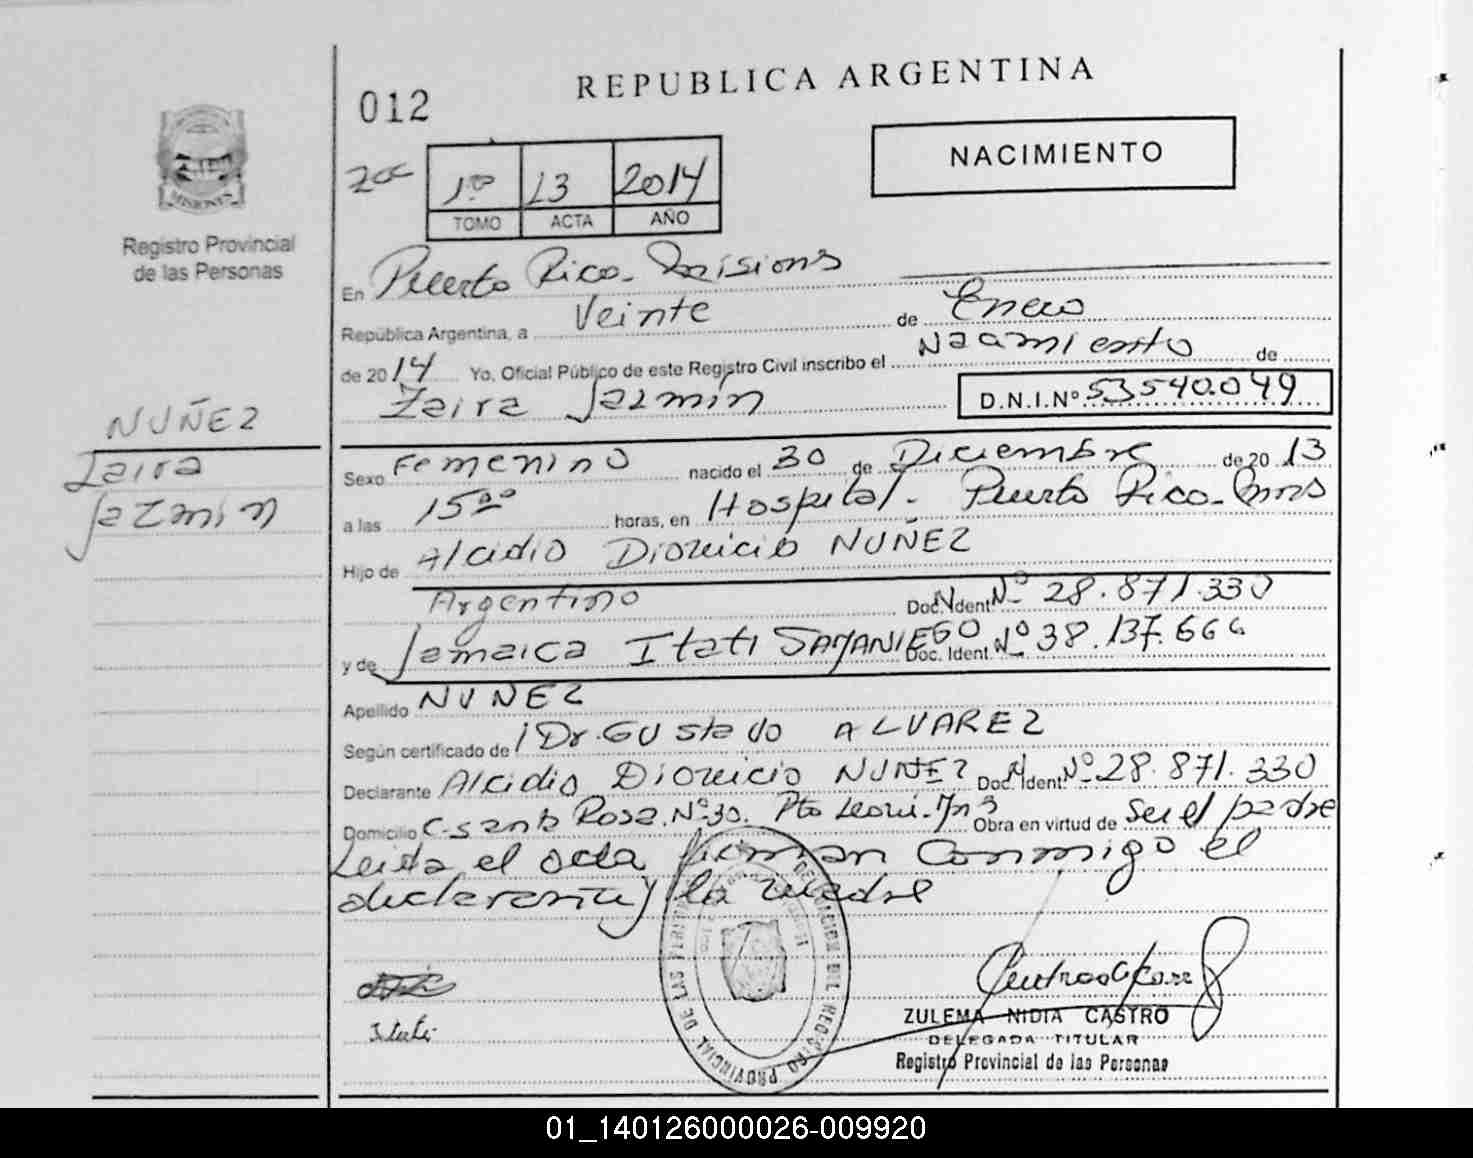 REPUBLICA ARGENTINA
012
NACIMIENTO
1ro 13 2014
TOMO ACTA AÑO
MISIONES
Registro Provincial
de las Personas
En Puerto Rico - Misiones
República Argentina, a Veinte de Enero
de 2014 Yo, Oficial Público de este Registro Civil inscribo el Nacimiento de
Zaira Jazmín D.N.I.Nº 53540.049
NUÑEZ
Zaira
Jazmín
Sexo Femenino nacido el 30 de Diciembre de 2013
a las 15 00 horas, en Hospital - Puerto Rico - Mnes
Hijo de Alcidio Dionicio NUÑEZ
Argentino Doc. Ident. Nº 28.871.330
y de Jamaica Itati SAMANIEGO Doc. Ident. Nº 38.137.666
Apellido NUÑEZ
Según certificado de Dr. Gustavo ALVAREZ
Declarante Alcidio Dionicio NUÑEZ Doc. Ident. Nº 28.871.330
Domicilio C. santa Rosa. Nº 30. Pto Leoni - Mns Obra en virtud de Ser el padre
Leída el acta firman conmigo el
declarante y la madre
DELEGACION DEL REGISTRO PROVINCIAL DE LAS PERSONAS
Itati
ZULEMA NIDIA CASTRO
DELEGADA TITULAR
Registro Provincial de las Personas
01_140126000026-009920